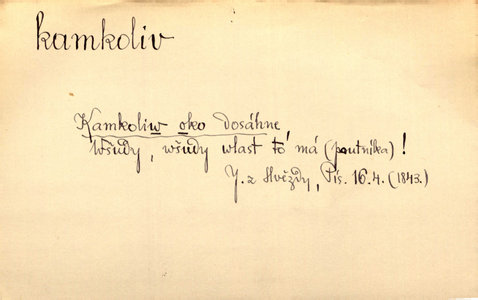 kamkoliv
Kamkoliw oko dosáhne,
Wšudy, wšudy wlasť to má (poutníka)!
J. z Hvězdy, Pís. 16.4. (1843.)